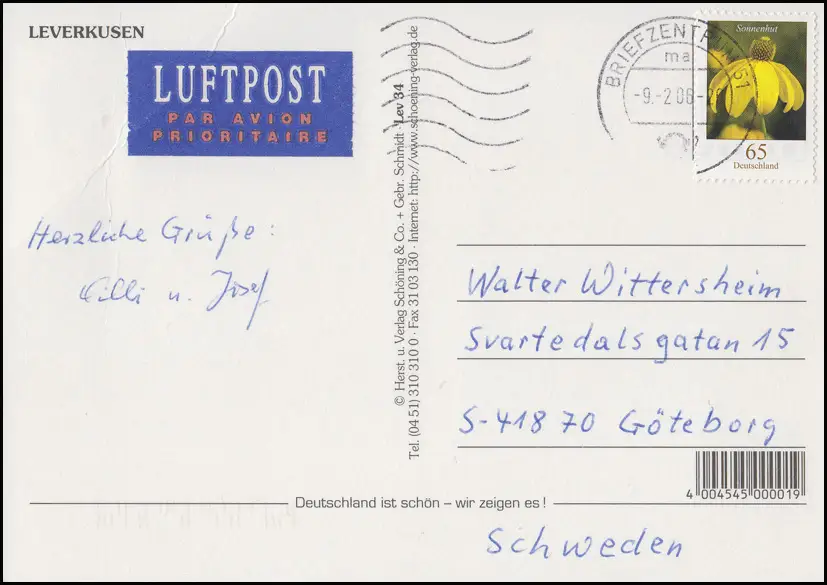 LEVERKUSEN
LUFTPOST
PAR AVION
PRIORITAIRE
Herzliche Grüße:
Cilli u. Josef
© Herst. u. Verlag Schöning & Co. + Gebr. Schmidt · Lev 34
Tel. (04 51) 310 310 0 · Fax 31 03 130 · Internet: http://www.schoening-verlag.de
BRIEFZENTR 51
ma
-9.-2.06-
Sonnenhut
65
Deutschland
Walter Wittersheim
Svartedalsgatan 15
S-418 70 Göteborg
4 004545 000019
Deutschland ist schön – wir zeigen es!
Schweden